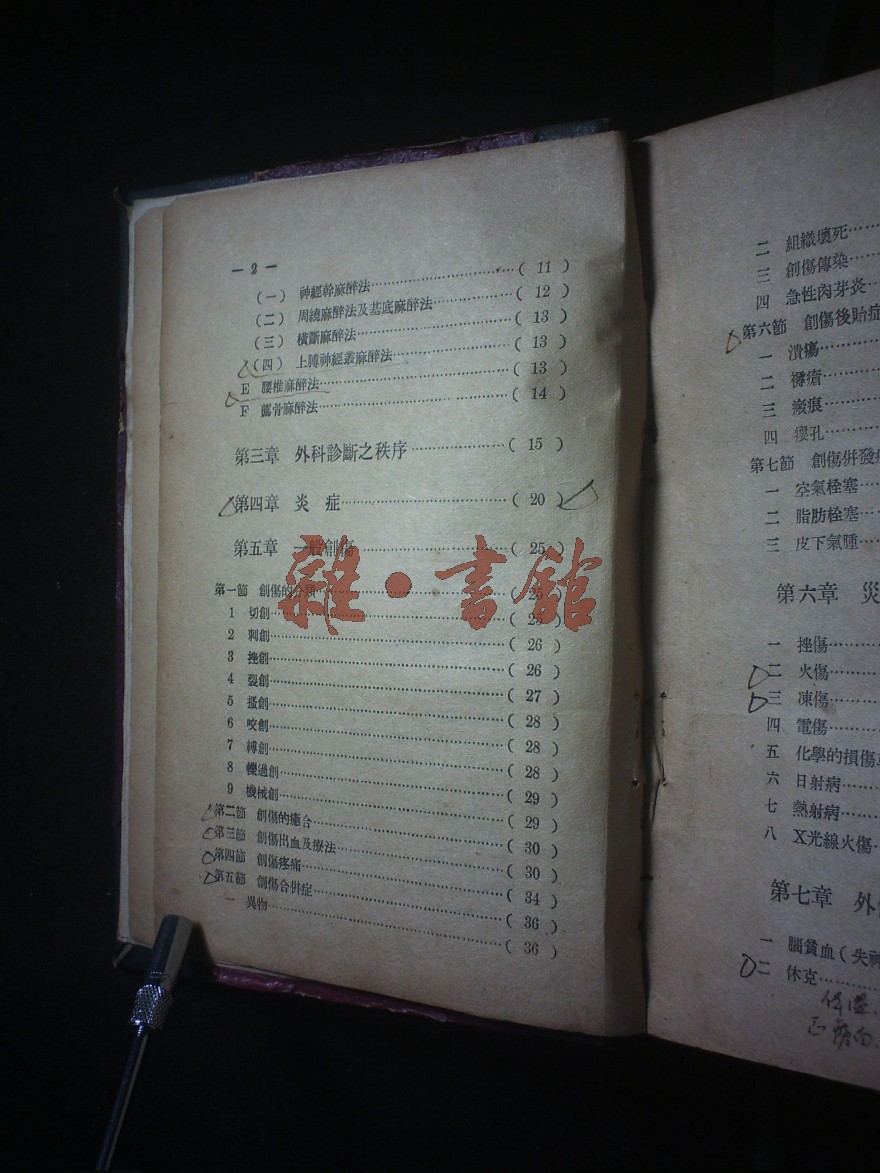 — 2 —
(一) 神經幹麻醉法…(11)
(二) 周繞麻醉法及基底麻醉法…(12)
(三) 橫斷麻醉法…(13)
(四) 上膊神經叢麻醉法…(13)
E 腰椎麻醉法…(13)
F 薦骨麻醉法…(14)
第三章 外科診斷之秩序…(15)
第四章 炎症…(20)
第五章 一般創傷…(25)
雜·書館
第一節 創傷的分類…(25)
1 切創…(25)
2 刺創…(26)
3 挫創…(26)
4 裂創…(27)
5 搔創…(28)
6 咬創…(28)
7 縛創…(28)
8 轢過創…(29)
9 機械創…(29)
第二節 創傷的癒合…(30)
第三節 創傷出血及療法…(30)
第四節 創傷疼痛…(34)
第五節 創傷合併症…(36)
一 異物…(36)
二 組織壞死…
三 創傷傳染…
四 急性肉芽炎…
第六節 創傷後貽症
一 潰瘍…
二 褥瘡…
三 瘢痕…
四 瘻孔…
第七節 創傷併發
一 空氣栓塞…
二 脂肪栓塞…
三 皮下氣腫…
第六章 災
一 挫傷…
二 火傷…
三 凍傷…
四 電傷…
五 化學的損傷
六 日射病…
七 熱射病…
八 X光線火傷…
第七章 外
一 腦貧血(失神
二 休克…